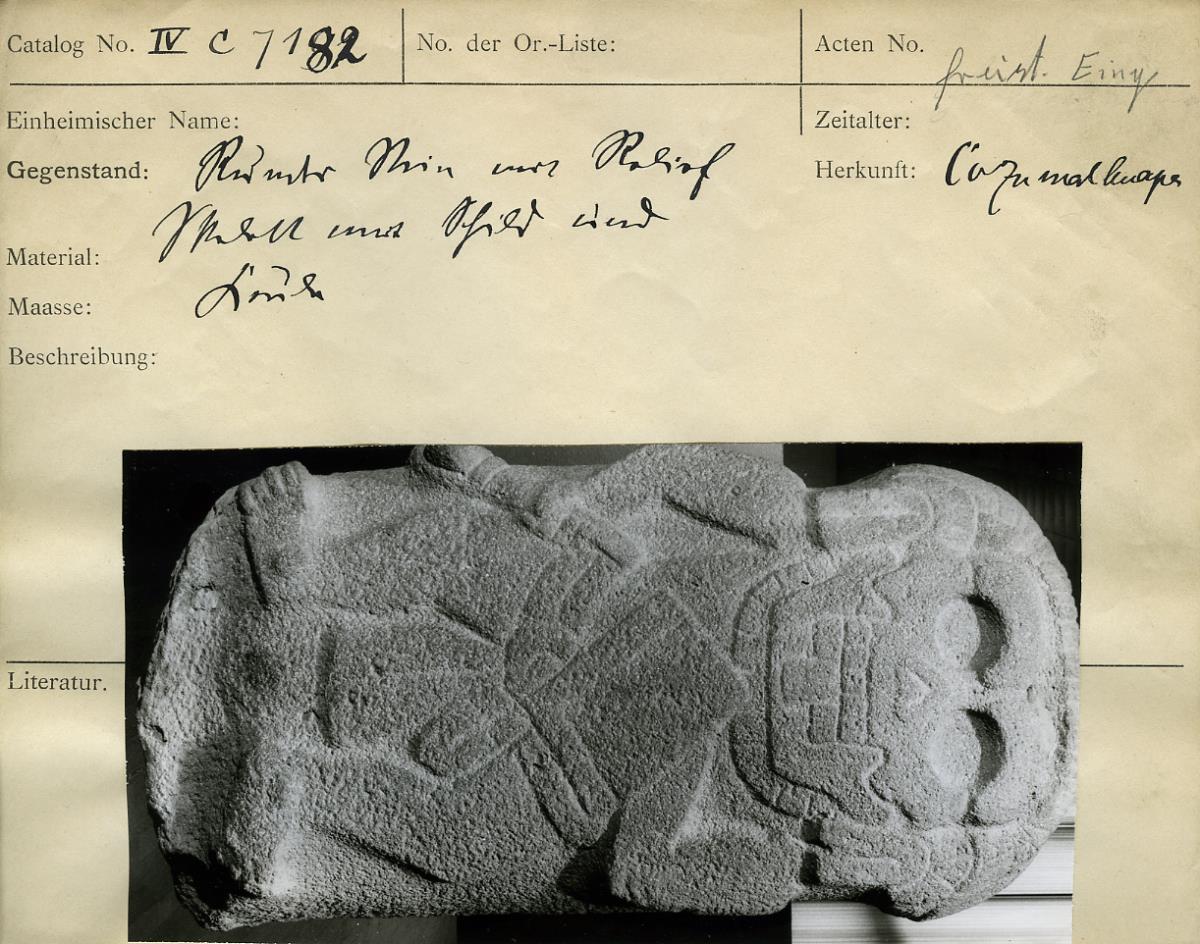 Catalog No. IV C 7182 No. der Or.-Liste: Acten No.
Einheimischer Name: Zeitalter:
Gegenstand: Runder Stein mit Relief Herkunft: Cozumalhuapa
Skelett mit Schild und
Material:
Keule
Maasse:
Beschreibung:
Literatur.